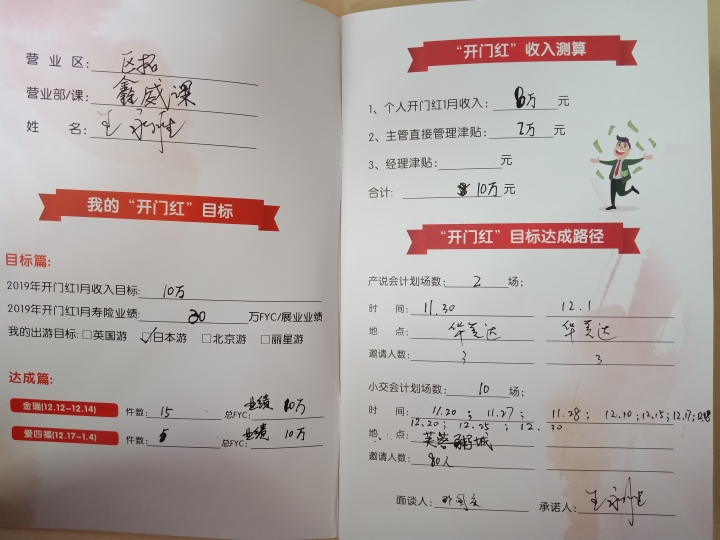 营 业 区: 区拓
营业部/课: 鑫威课
姓 名: 王
我的“开门红”目标
目标篇:
2019年开门红1月收入目标: 10万
2019年开门红1月寿险业绩: 30 万FYC/展业业绩
我的出游目标: □英国游 ☑日本游 □北京游 □丽星游
达成篇:
金瑞(12.12-12.14) 件数: 15 总FYC: 业绩 20万
爱四福(12.17-1.4) 件数: 5 总FYC: 业绩 10万
“开门红”收入测算
1、个人开门红1月收入: 8万 元
2、主管直接管理津贴: 2万 元
3、经理津贴: 元
合计: 10万 元
“开门红”目标达成路径
产说会计划场数: 2 场;
时 间: 11.30 12.1
地 点: 华美达 华美达
邀请人数: 3 3
小交会计划场数: 10 场;
时 间: 11.20 ; 11.27 ; 11.28 ; 12.10 ; 12.15 ; 12.17 ;
12.20 ; 12.25 ; 12.30
地 点: 芙蓉 城
邀请人数: 80人
面谈人: 承诺人: 王